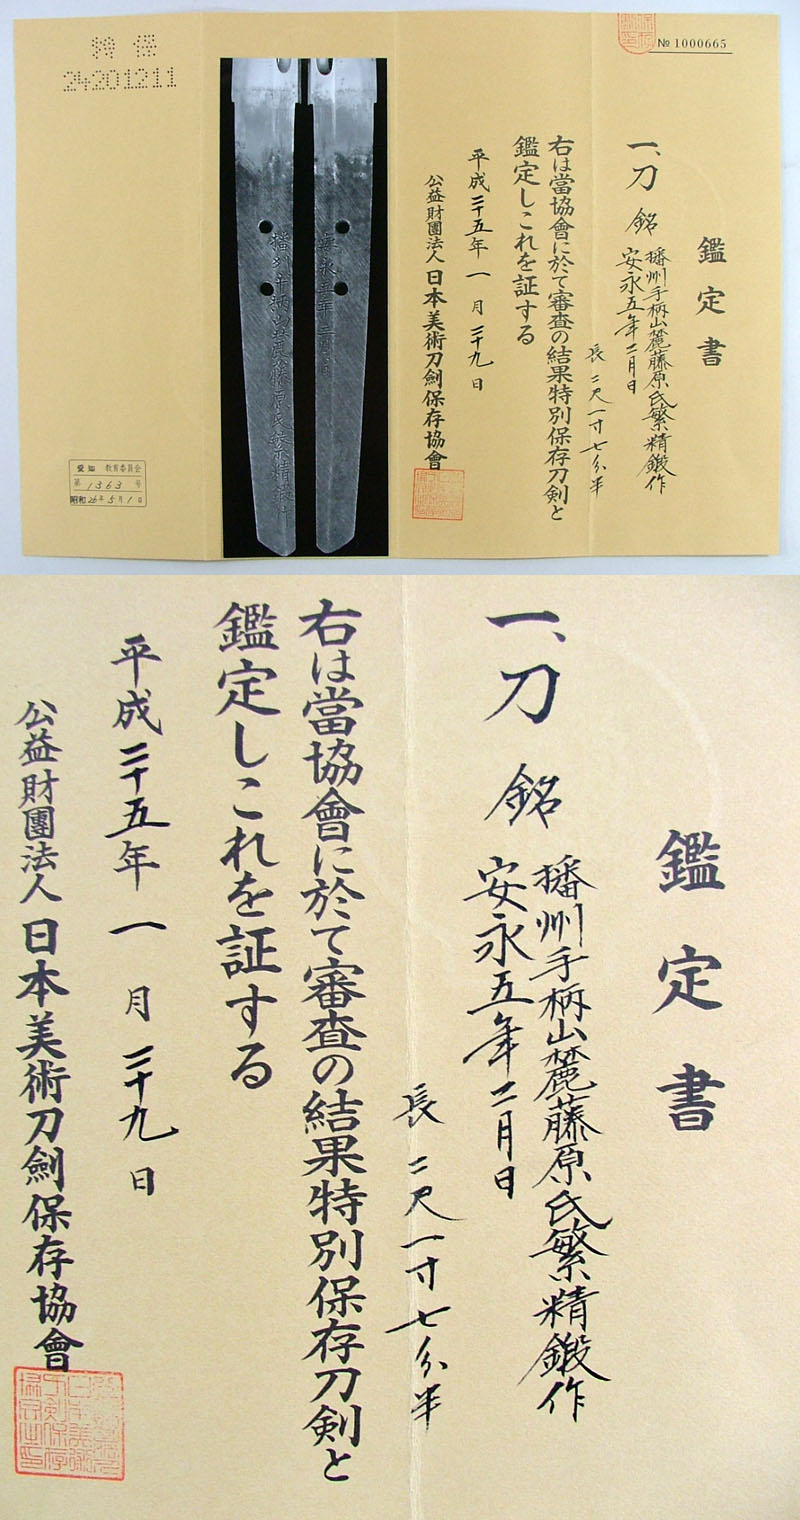 特保
24201211
№ 1000665
鑑定書
一、刀 銘 播州手柄山麓藤原氏繁精鍛作
安永五年二月日
長 二尺一寸七分半
右は當協會に於て審査の結果特別保存刀剣と
鑑定しこれを証する
平成二十五年一月二十九日
公益財團法人日本美術刀劍保存協會
播州手柄山麓藤原氏繁精鍛作
安永五年二月日
愛知 教育委員会
第1363号
昭和26年5月1日
鑑定書
一、刀 銘 播州手柄山麓藤原氏繁精鍛作
安永五年二月日
長 二尺一寸七分半
右は當協會に於て審査の結果特別保存刀剣と
鑑定しこれを証する
平成二十五年一月二十九日
公益財團法人日本美術刀劍保存協會